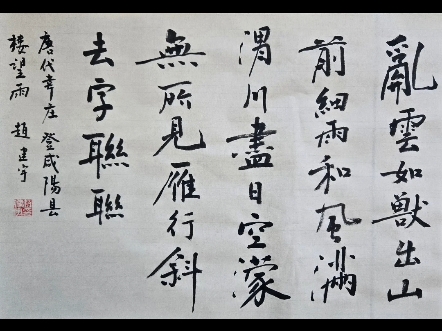 亂雲如獸出山
前細雨和風滿
渭川盡日空濛
無所見雁行斜
去字聯聯
唐代韋庄 登咸陽县
楼望雨 趙建宇